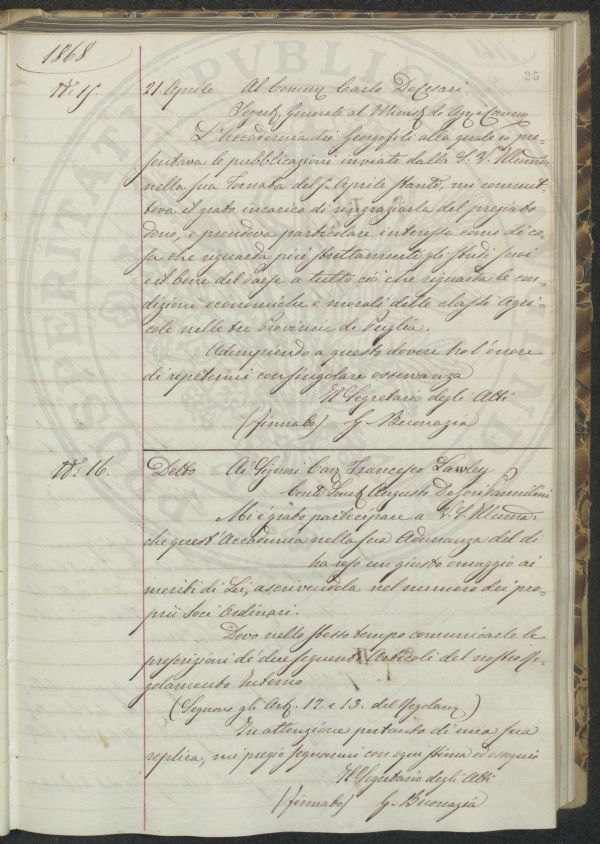 1868
25
N.º 15. 21 Aprile Al Comm.e Carlo De Cesari
Segret. Generale al Minist. di Ag. e Comm.
L'Accademia dei Georgofili alla quale io pre-
sentava le pubblicazioni inviate dalla S. V. Illuma
nella sua Tornata del 5. Aprile stante, mi commet-
teva il grato incarico di ringraziarla del pregiato
dono, e prendeva particolare interesse come di co-
sa che riguarda più strettamente gli studi suoi
e il bene del Paese a tutto ciò che riguarda le con-
dizioni economiche e morali delle classi agri-
cole nelle tre Provincie di Puglia.
Adempiendo a questo dovere ho l'onore
di ripetermi con singolare osservanza
Il Segretario degli Atti
(firmato) G. Buonazia
N.º 16. Detto Ai Signori Cav. Francesco Lawley
Conte Augusto De Gori Pannilini
Mi è grato partecipare a V. S. Illuma
che quest'Accademia nella sua Adunanza del dì
ha reso un giusto omaggio ai
meriti di Lei, ascrivendola nel numero dei pro-
prii Soci Ordinari.
Devo nello stesso tempo comunicarle le
prescrizioni de' due seguenti Articoli del nostro Re-
golamento Interno
(Seguono gli Art. 12. e 13. del Regolam.)
In attenzione pertanto di una sua
replica, mi pregio segnarmi con ogni stima ed ossequio
Il Segretario degli Atti
(firmato) G. Buonazia